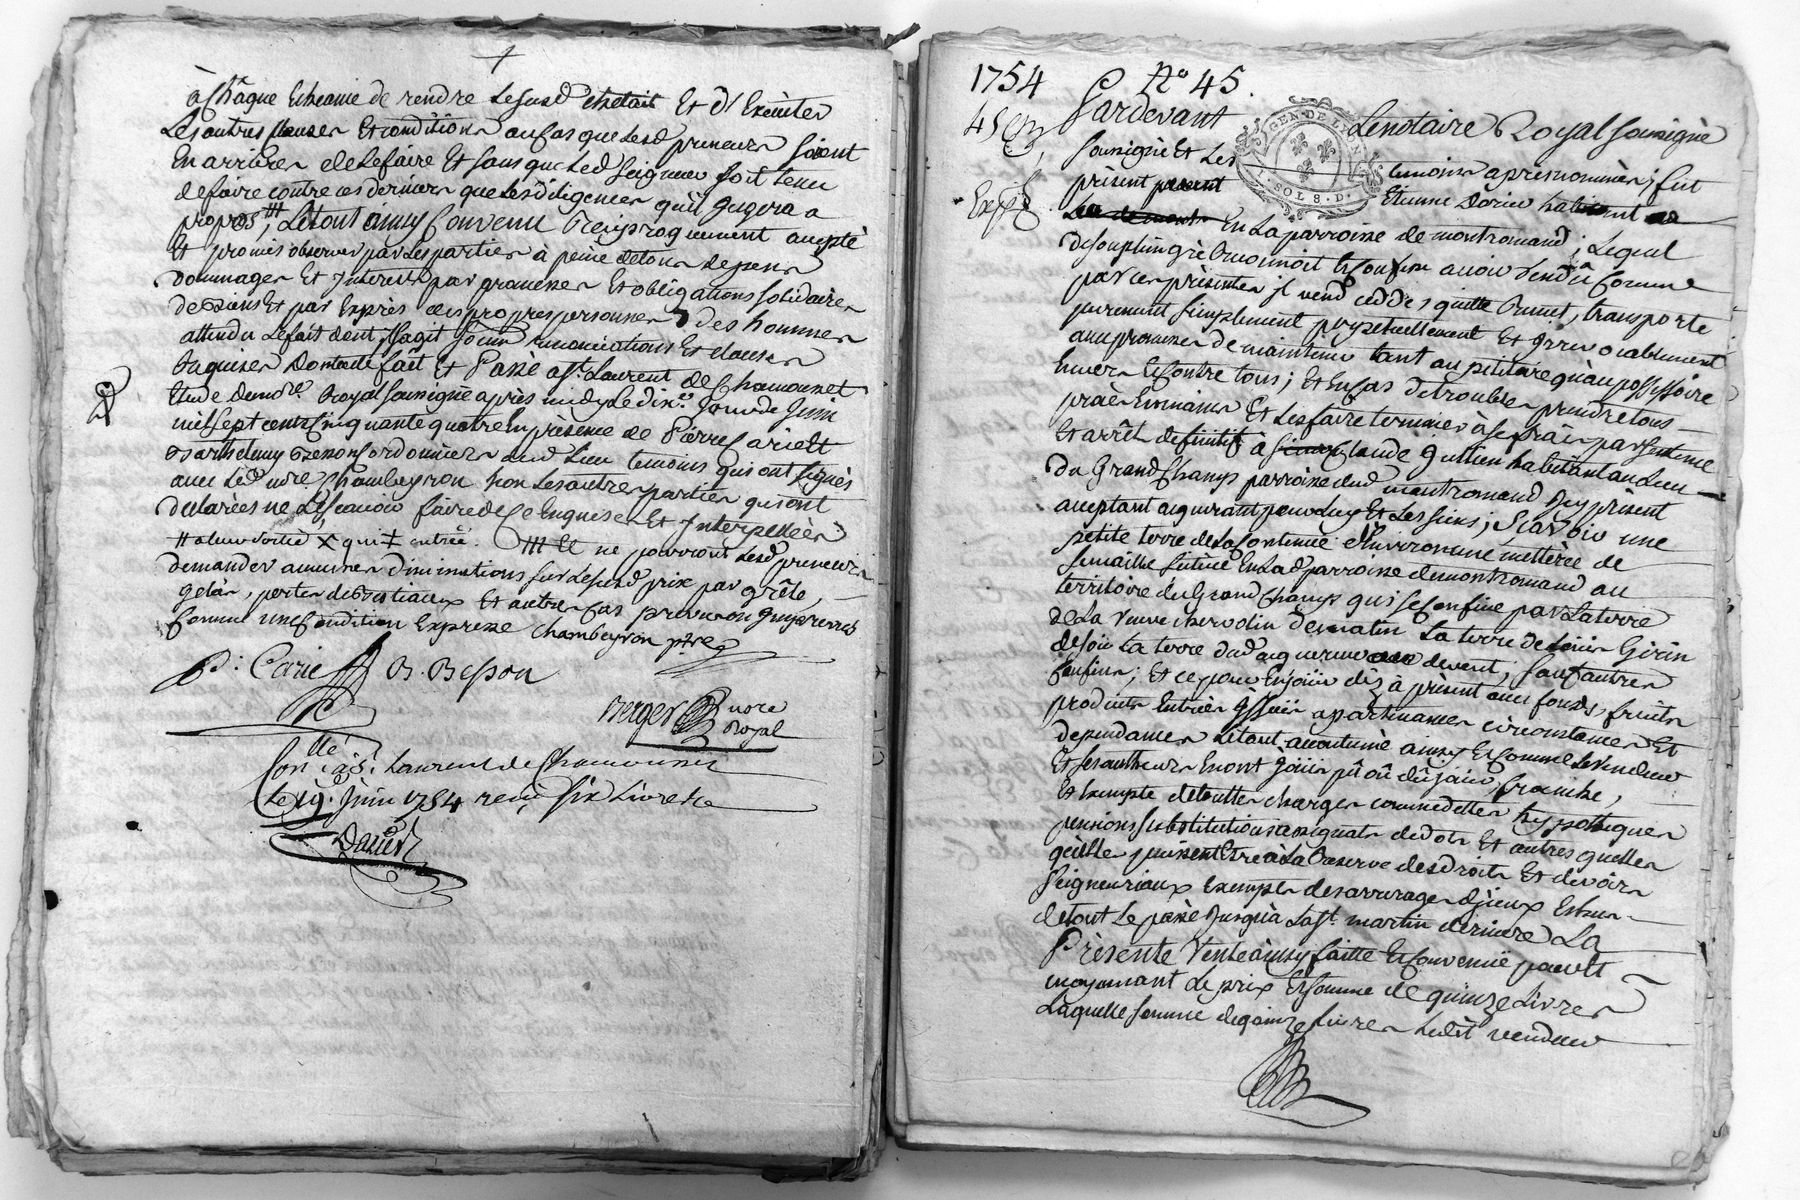 à Chaque Echeanie de rendre Lesusd. Et d'Executer
Les autres clauses Et conditions au cas que Lesd. preneurs soient
En arriere de Le faire Et sans que Led. Seigneur soit tenu
de faire contre ces derniers que Les diligences qu'il Jugera a
propos, Le tout ainsy Convenu Reciproquement accepté
Et promis observer par Les parties à peine de tous depens
dommages Et Interests par promesses Et obligations solidaires
de Biens Et par Exprès des propres personnes des hommes
attendu Le fait dont s'agit renonciations Et clauses
Requises Dont acte fait Et Passé a St. Laurent de Chamousset
Etude dud. Royal soussigné après midy Le dix Jour de Juin
mil sept cents Cinquante quatre En presence de Pierre Carie Et
Barthelemy Besson Cordonniers dud. Lieu temoins qui ont signés
avec Led. mre Chambeyron non Les autres parties qui ont
declarées ne Le scavoir faire de ce Enquises Et Interpellées
ne pourront Lesd. preneurs
demander aucunes diminutions sur Lesusd. prix par grêle,
gelée, pertes de Bestiaux Et autres cas prevu ou Imprevus
Comme une Condition Expresse Chambeyron ptre
P: Carie B. Besson
Berger nore
Royal
Conlle. à St. Laurent de Chamousset
Le 19. Juin 1754 reçu six Livres
1754 No 45.
45
Pardevant Le notaire Royal soussigné
soussigné Et Les temoins apres nommés; fut
présent Etienne habitant
Exped.
En La parroisse de montromand; Lequel
de son plein gré Reconnoit Et Confesse avoir Vendu Comme
par ces présentes il vend cedde, quitte Remet, transporte
purement simplement perpetuellement Et Irrevocablement
avec promesse de maintenir tant au petitoire qu'au possessoire
Envers Et Contre tous; Et En cas de troubles prendre tous
procès En mains Et Les faire terminer à ses frais par sentence
Et arrêt definitif à Claude Guttien habitant au Lieu
du Grand Champ parroisse dud. montromand Icy présent
acceptant acquerant pour Luy Et Les siens; Scavoir une
petite terre de La Contenue d'Environ une mettère de
semaille situee En Lad. parroisse de montromand au
territoire du Grand Champ qui se Confine par La terre
de La Veuve de matin La terre de Louis Girin
de soir La terre dud. acquereur de vent; sauf autres
Confins; Et ce pour En jouir dez à présent avec fonds, fruits
produits Entrées Issües apartenances circonstances Et
dependances Le tout accoutumé ainsy Et Comme Le Vendeur
Et ses autheurs En ont Joüi pû ou dû joüir, franche,
Et Exempte de toutes charges commedettes hypothèques
pensions substitutions assignats de dots Et autres quelles
qu'elles puissent Etre à La Reserve des droits Et devoirs
seigneuriaux Exempts des arrerages d'iceux Echus
de tout Le passé Jusqu'à La St. martin derniere La
Présente Vente ainsy faitte Et Convenüe pour Et
moyennant Le prix Et somme de quinze Livres
Laquelle somme de quinze Livres Ledit vendeur